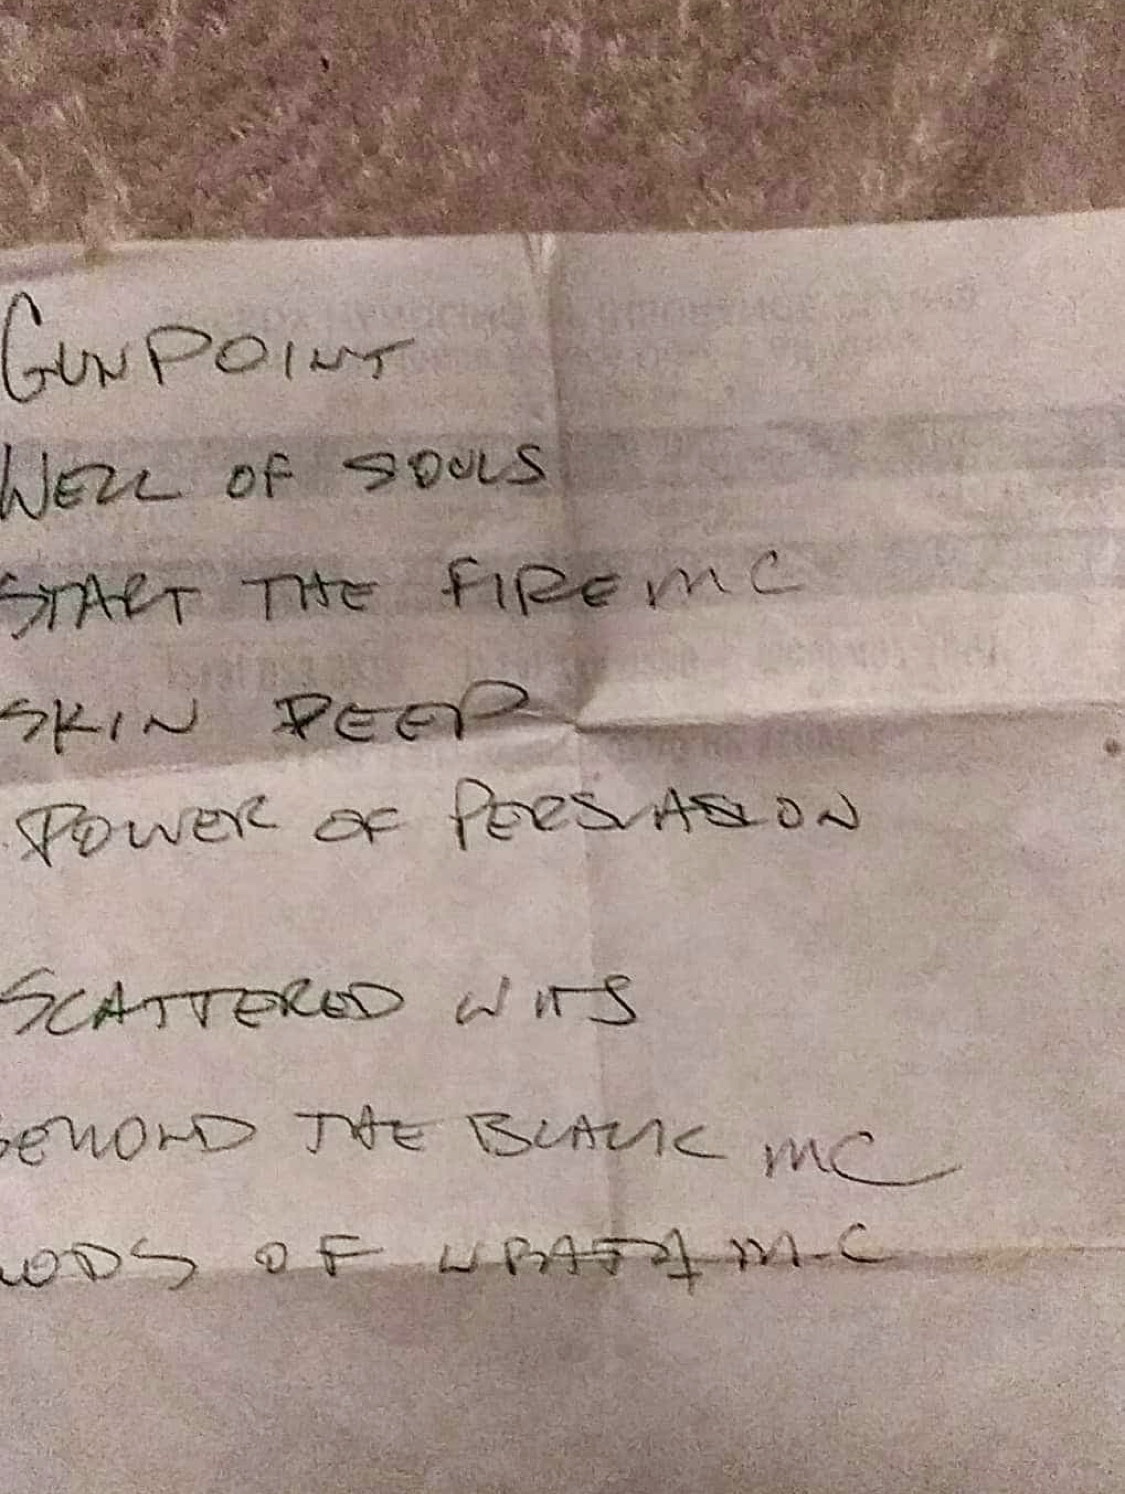 GUNPOINT
WELL OF SOULS
START THE FIRE MC
SKIN DEEP
POWER OF PERSUASION
SCATTERED WITS
BEYOND THE BLACK MC
GODS OF WRATH M-C